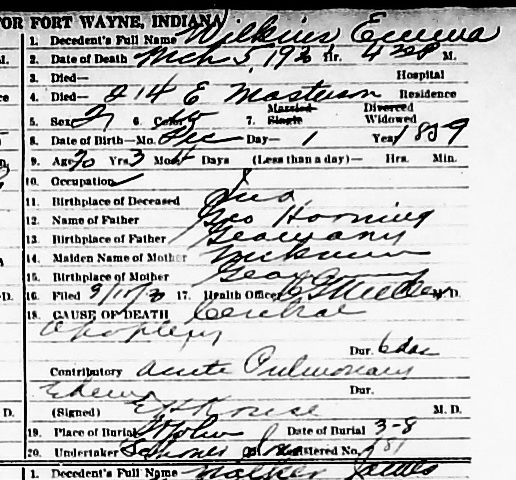 OR FORT WAYNE, INDIANA
1. Decedent's Full Name Wilkins Emma
2. Date of Death Mch 5 193 Hr. 4 M.
3. Died— Hospital
4. Died— 214 E Masterson Residence
5. Sex F 6. Color 7. Married Single Divorced Widowed
8. Date of Birth—Mo. Dec Day— 1 Year 1859
9. Age 70 Yrs. 3 Mos. 4 Days (Less than a day)— Hrs. Min.
10. Occupation
11. Birthplace of Deceased Ind
12. Name of Father Geo Horning
13. Birthplace of Father Germany
14. Maiden Name of Mother
15. Birthplace of Mother Germany
16. Filed 3/10/30 17. Health Officer M.D.
18. CAUSE OF DEATH Cerebral
Apoplexy
Dur. 6 das
Contributory Acute Pulmonary
Edema Dur.
(Signed) M. D.
19. Place of Burial St John Date of Burial 3-8
20. Undertaker Schoner Sons Registered No. 181
1. Decedent's Full Name Walker James